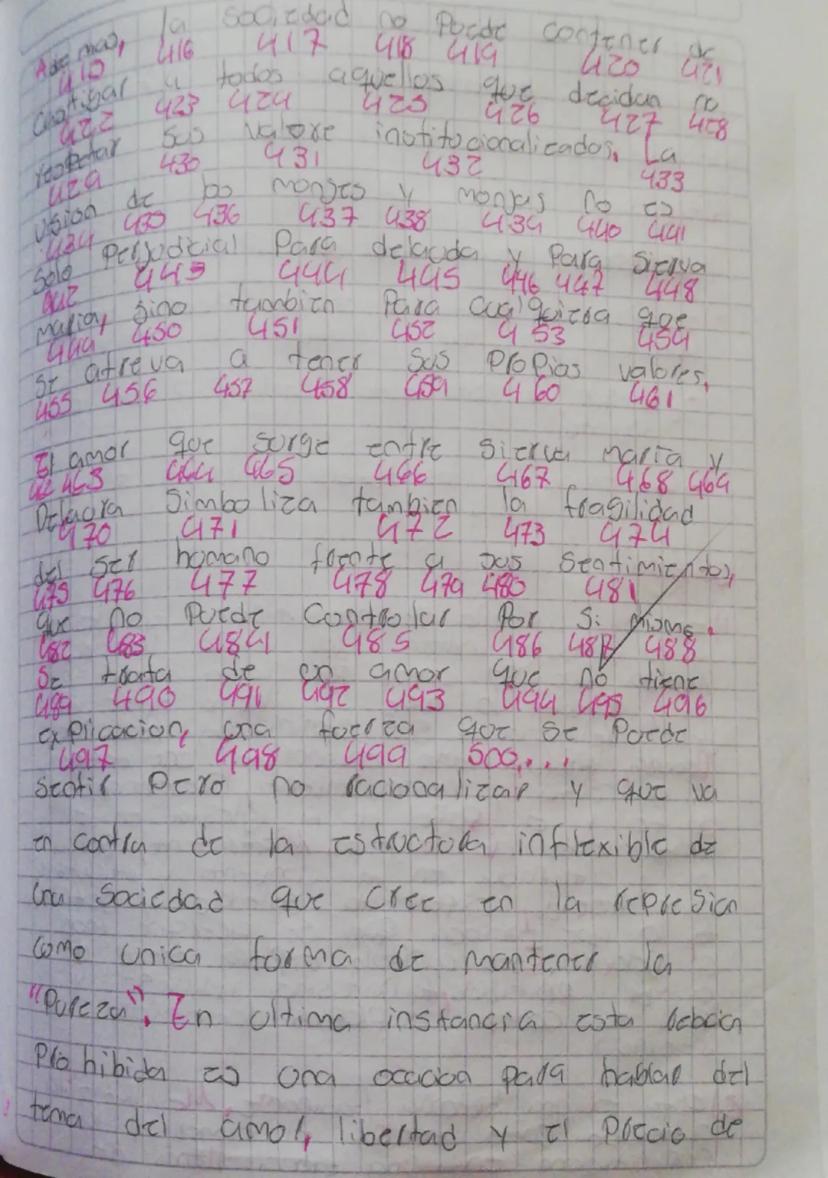 Ademas, la sociedad no Puede contener de
410 416 417 418 419 420 421
Castigar a todos aquellos que decidan no
422 423 424 425 426 427 428
respetar sus valore institucionalizados. La
429 430 431 432 433
vision de los monjes y monjas no es
434 435 436 437 438 439 440 441
Solo Perjudicial Para delauda y Para Sierva
442 443 444 445 446 447 448
Maria, sino tambien Para cualquiera que
449 450 451 452 453 454
se atreva a tener sus Propias valores.
455 456 457 458 459 460 461
El amor que surge entre Sierva maria y
463 464 465 466 467 468 469
Delaura Simboliza tambien la fragilidad
470 471 472 473 474
del ser humano frente a sus sentimientos,
475 476 477 478 479 480 481
que no Puede Controlar Por Si mismo.
482 483 484 485 486 487 488
Se trata de un amor que no tiene
489 490 491 492 493 494 495 496
explicacion, una fuerza que se Puede
497 498 499 500....
sentir Pero no racionalizar y que va
en contra de la estructura inflexible de
una Sociedad que cree en la represion
como unica forma de mantener la
"Pureza". En ultima instancia esta
Prohibida es una para hablar del
tema del amor, libertad y el Precio de